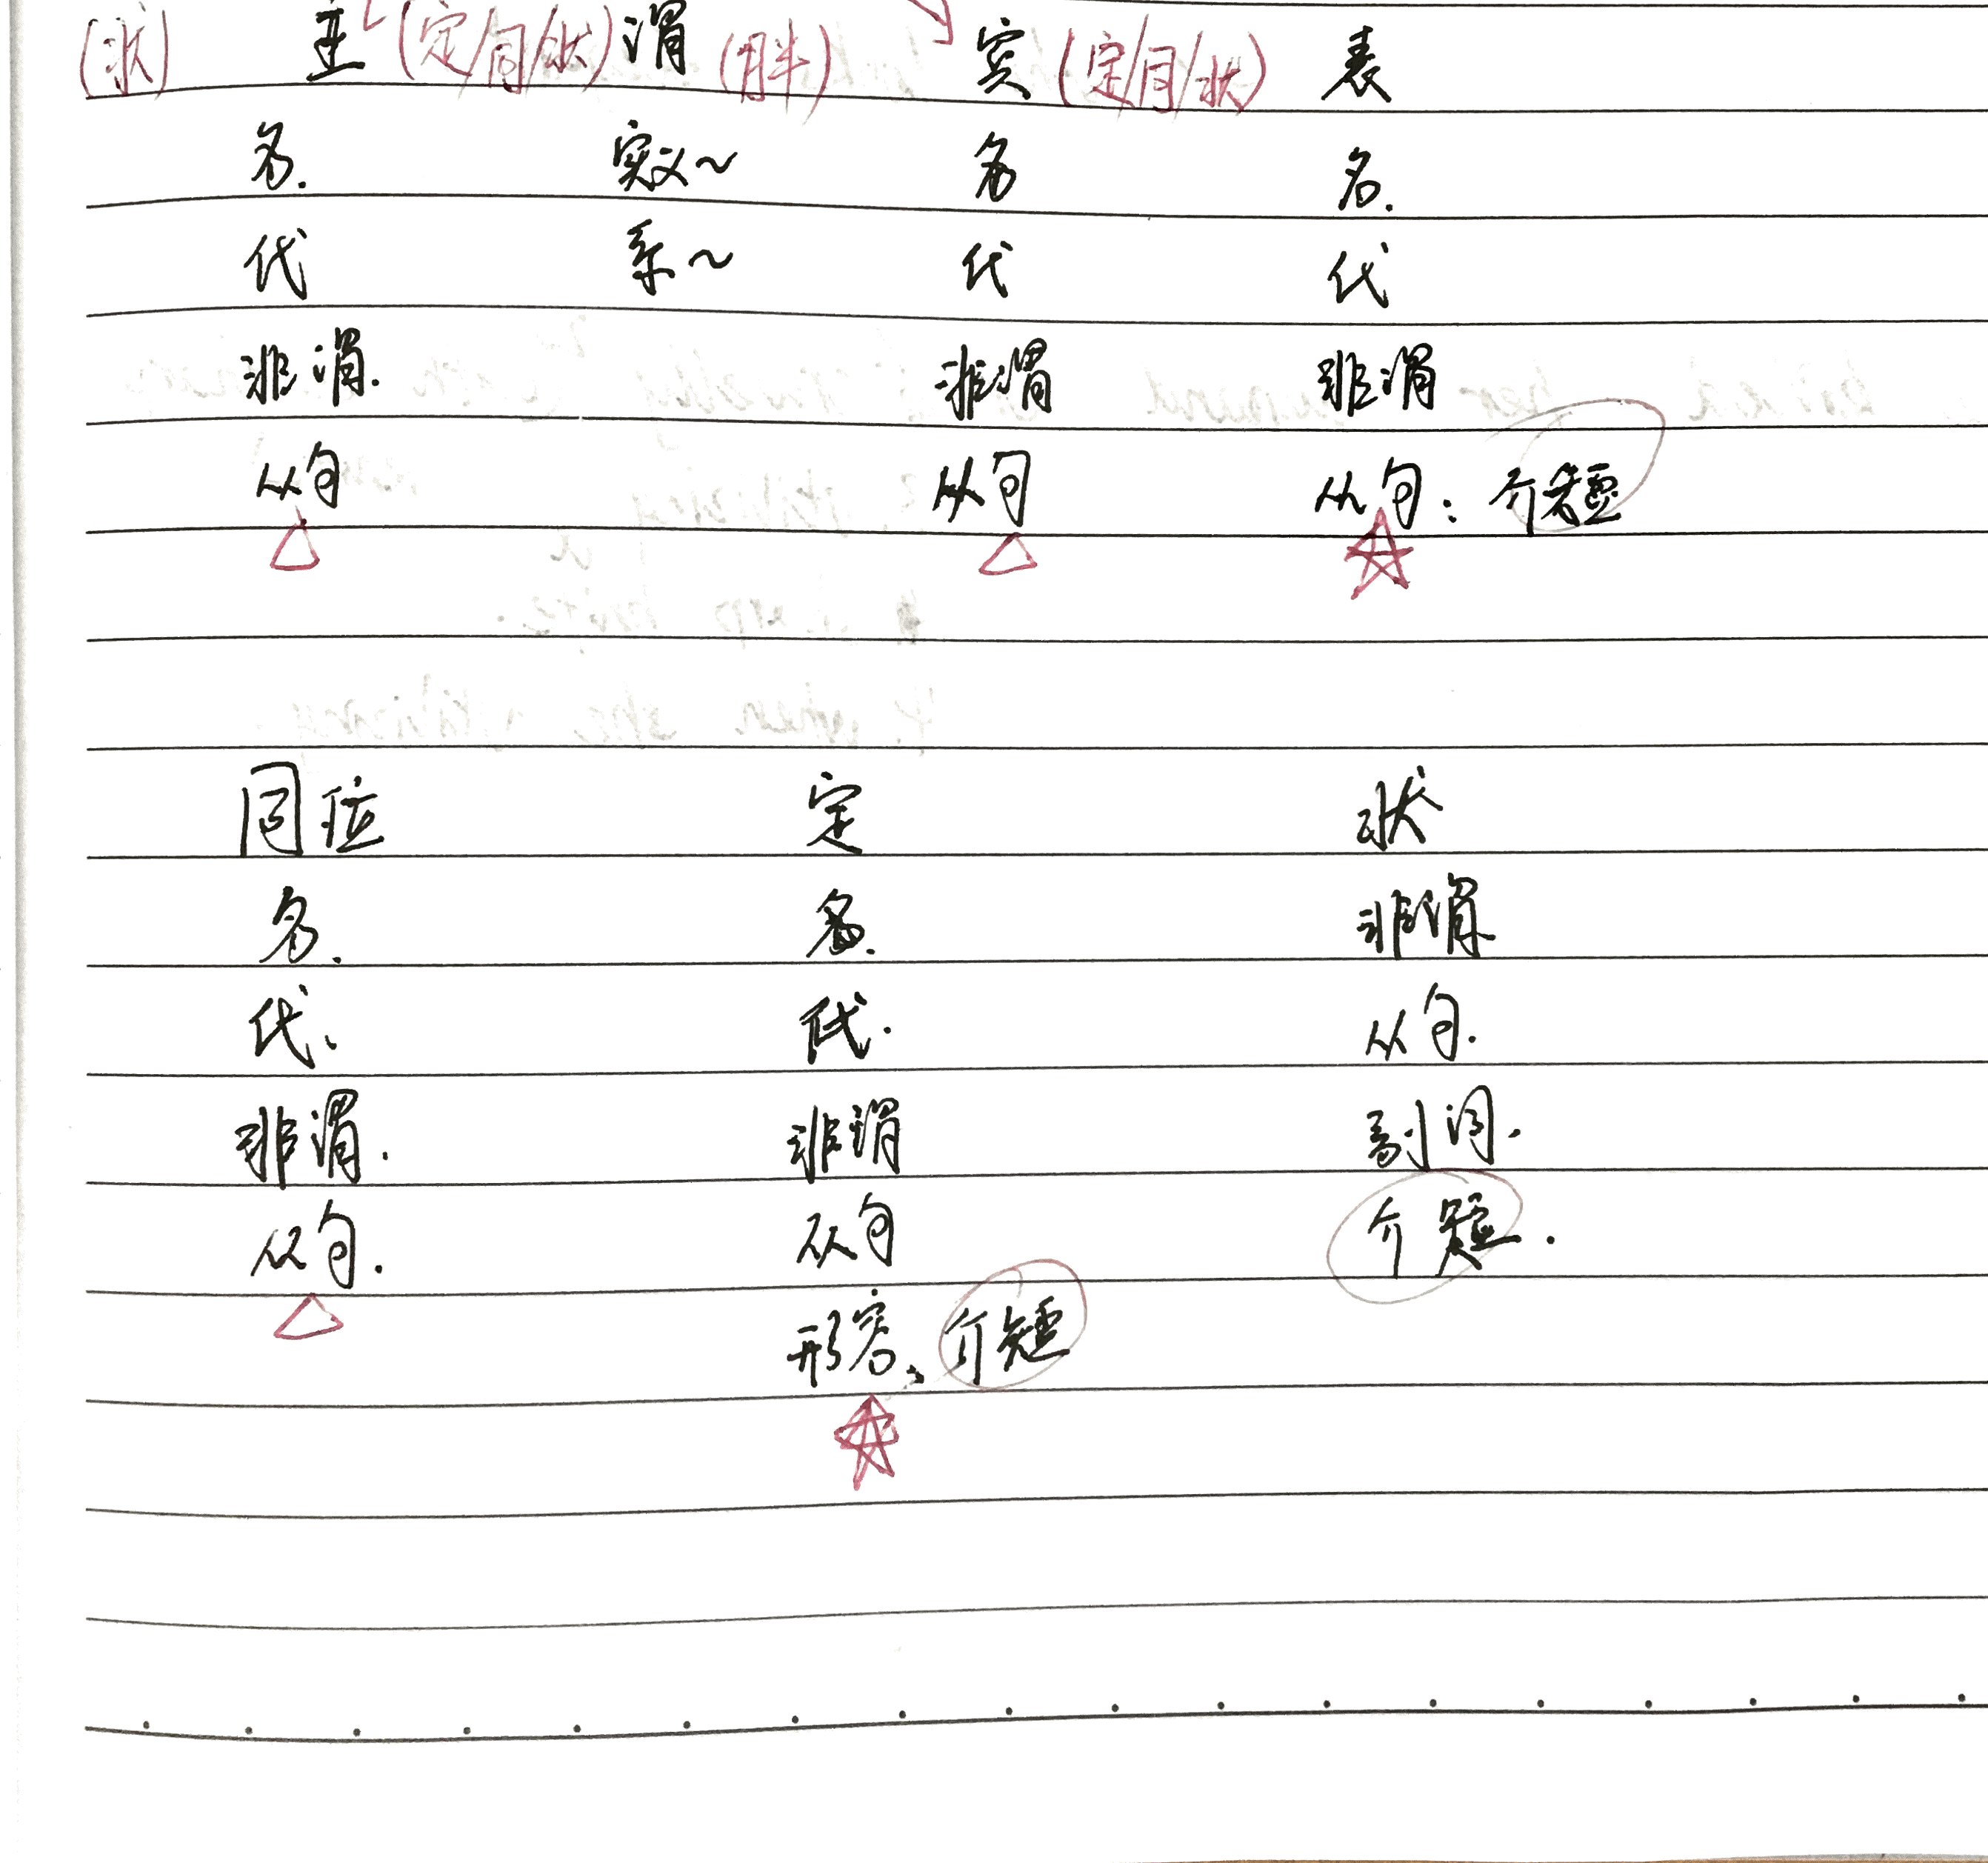 (状) 主 (定/同/状) 谓 (胖) 宾 (定/同/状) 表
名. 实义~ 名 名.
代 系~ 代 代
非谓. 非谓 非谓
从句 从句 从句: 介短
同位 定 状
名. 名. 非谓
代、 代. 从句.
非谓. 非谓 副词.
从句. 从句 介短.
形容、介短